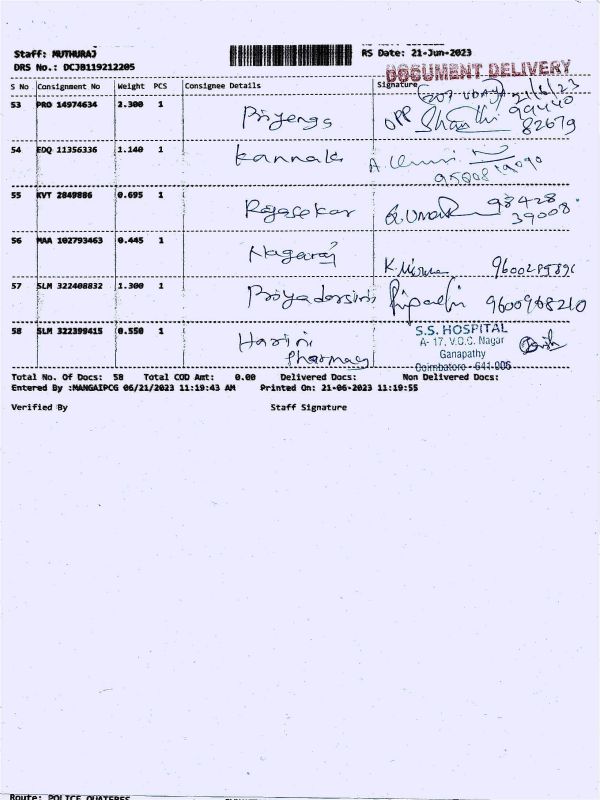 Staff: MUTHURAJ
RS Date: 21-Jun-2023
DRS No.: DCJB119212205
DOCUMENT DELIVERY
S No Consignment No Weight PCS Consignee Details Signature
21/6/23
53 PRO 14974634 2.300 1 Priyenga OPP Shanthi 99440
82679
54 EDQ 11356336 1.140 1 Kannaki
55 KVT 2849886 0.695 1 Rajasekar 98428
39008
56 MAA 102793463 0.445 1 Nagaraj
57 SLM 322408832 1.300 1 Priyadarsini 9600968210
58 SLM 322399415 0.550 1 Harini
Pharmacy
S.S. HOSPITAL
A- 17, V.O.C. Nagar
Ganapathy
Coimbatore - 641 006
Total No. Of Docs: 58 Total COD Amt: 0.00 Delivered Docs: Non Delivered Docs:
Entered By :MANGAIPCG 06/21/2023 11:19:43 AM Printed On: 21-06-2023 11:19:55
Verified By Staff Signature
Route: POLICE QUATERES